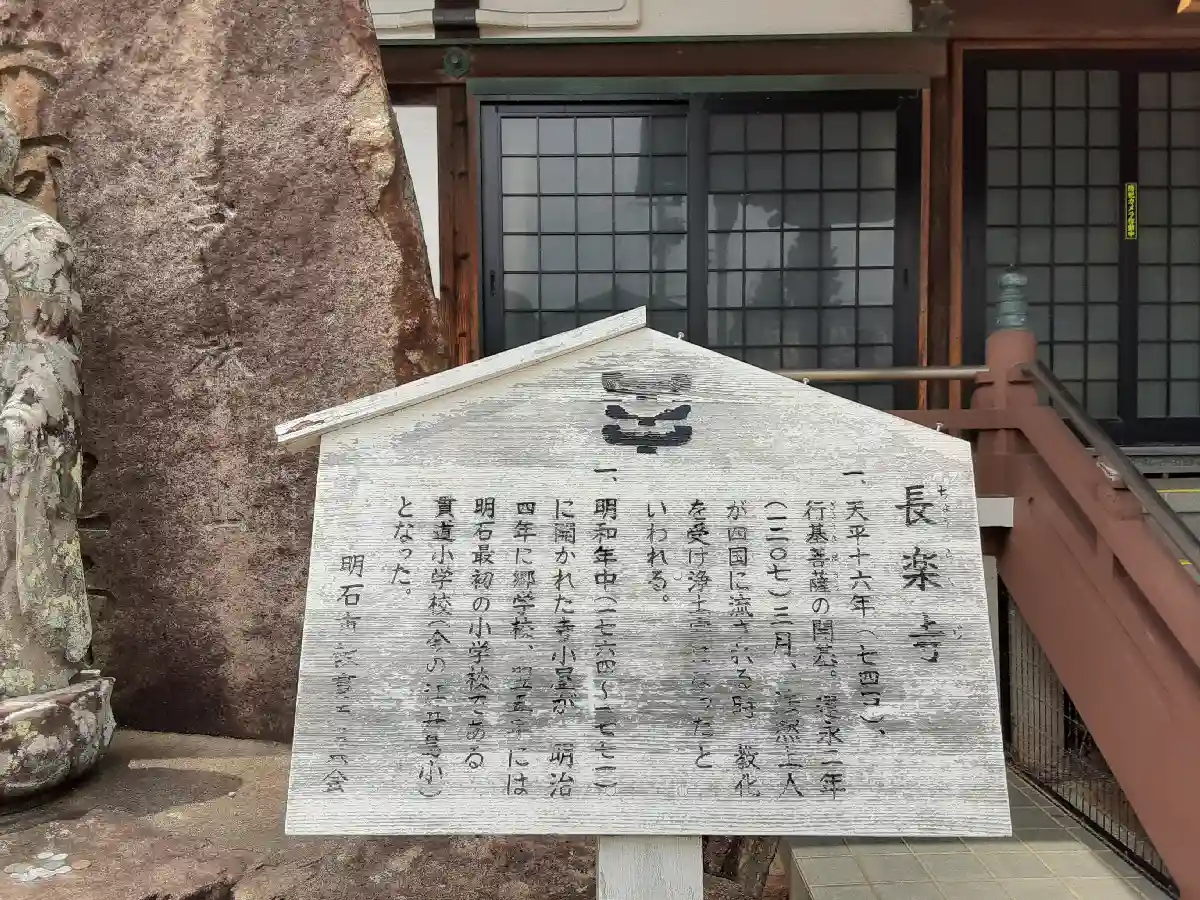 長楽寺
一、天平十六年(七四四)、
行基菩薩の開基。 二年
(一二〇七)三月、法然上人
が四国に流される時 教化
を受け浄土宗に ったと
いわれる。
一、明和年中(一七六四〜一七七一)
に開かれた寺小屋が 明治
四年に郷学校、翌五年には
明石最初の小学校である
貫道小学校(今の江井島小)
となった。
明石市 会
防犯カメラ作動中